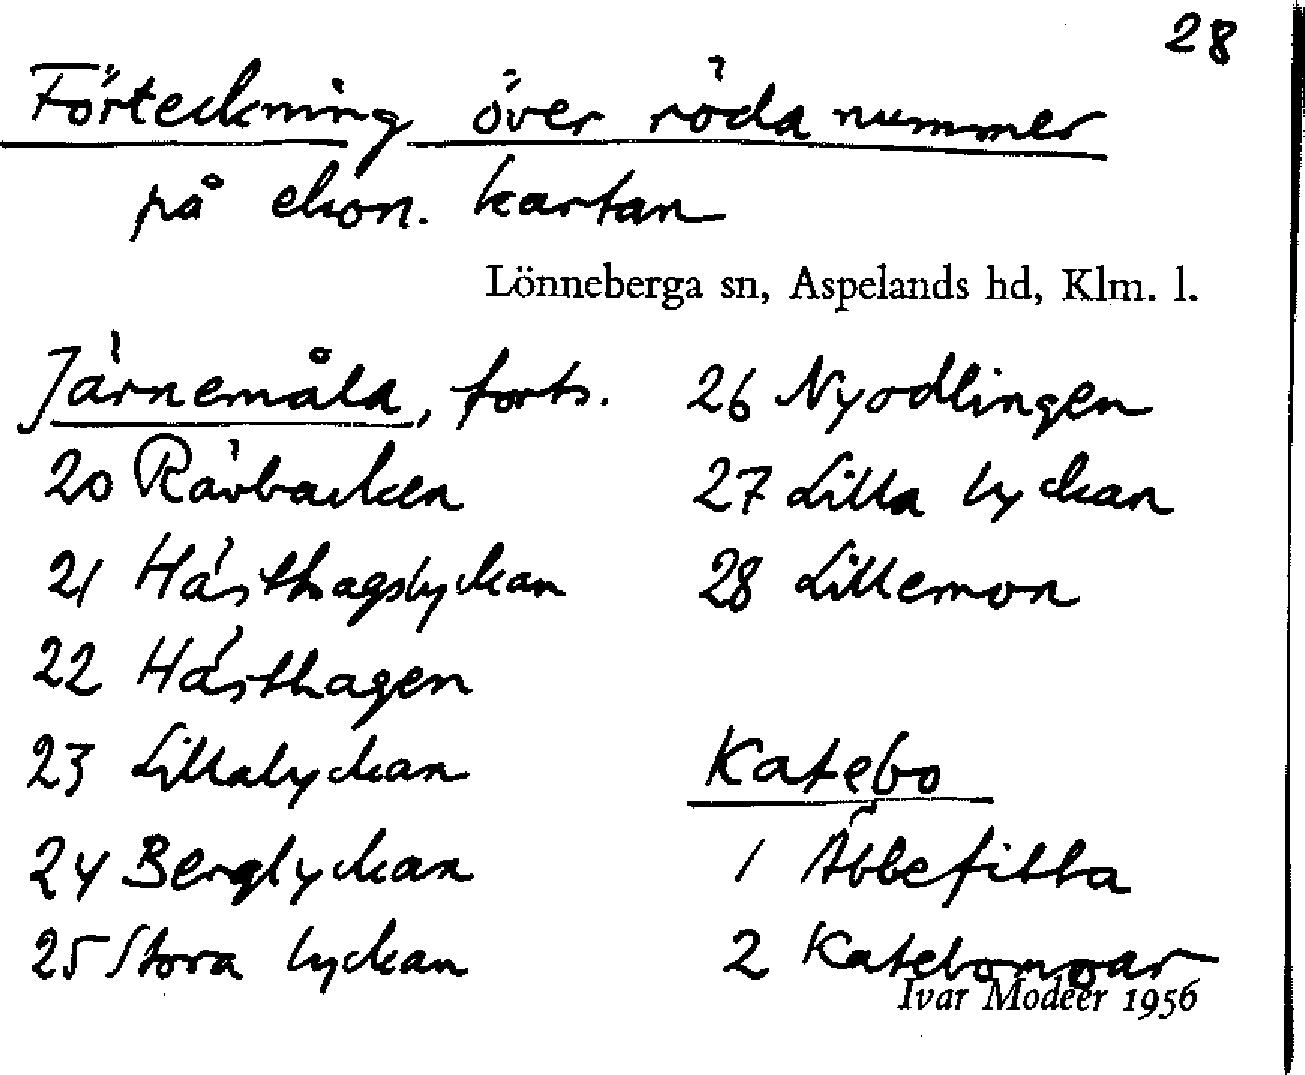 28
Förteckning över röda nummer
på ekon. kartan
Lönneberga sn, Aspelands hd, Klm. l.
Järnemåla, forts.
20 Rävbacken
21 Hästhagslyckan
22 Hästhagen
23 Lillalyckan
24 Berglyckan
25 Stora lyckan
26 Nyodlingen
27 Lilla lyckan
28 Lillemon
Katebo
1 Äbbefitta
2 Katebomoar
Ivar Modéer 1956